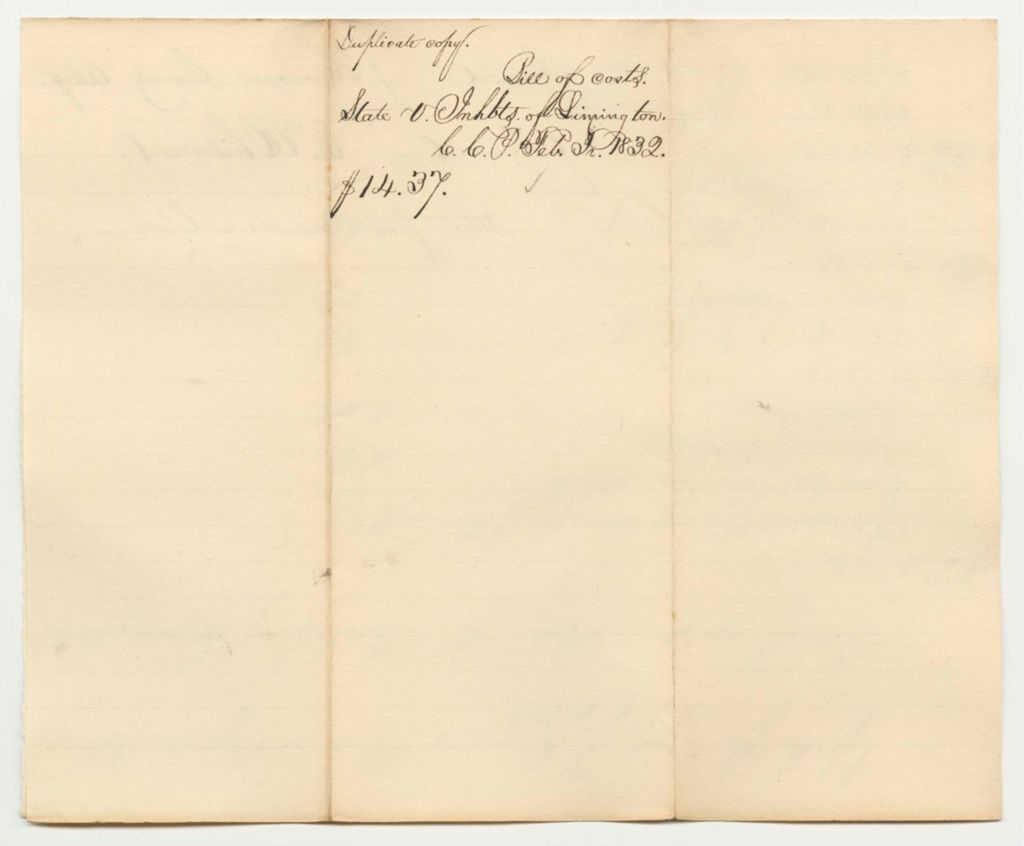 Duplicate copy.
Bill of costs.
State v. Inhbts. of Limington.
C. C. P. Feb. Tr. 1832.
$14.37.